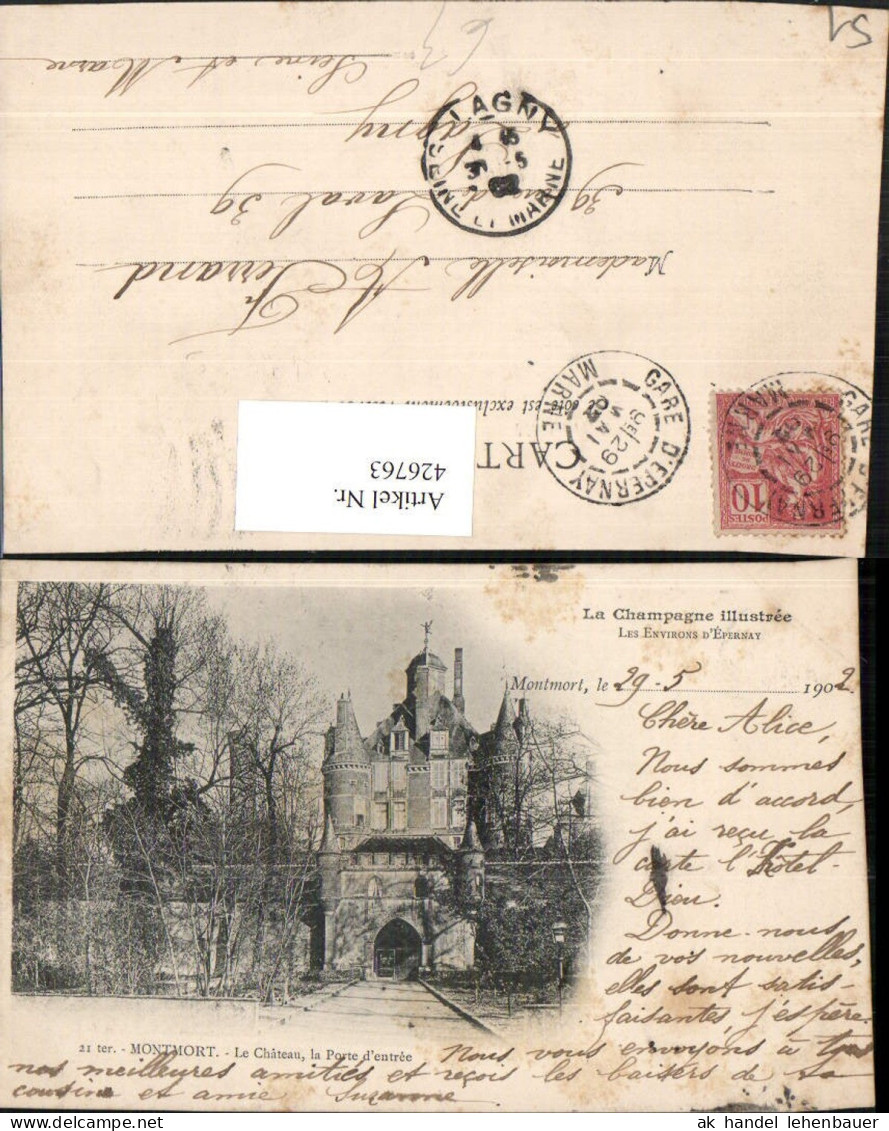 51
63
Seine et Marne
Lagny
39 Laval 39
Mademoiselle A Ferrand
LAGNY
SEINE ET MARNE
CART
est exclusivement
GARE D'EPERNAY
MARNE
9E/29
MAI
02
GARE D'EPERNAY
MARNE
10
POSTES
Artikel Nr.
426763
La Champagne illustrée
LES ENVIRONS D'ÉPERNAY
Montmort, le 29-5 1902
Chère Alice,
Nous sommes
bien d'accord,
j'ai reçu la
carte l'Hôtel-
Dieu.
Donne-nous
de vos nouvelles,
elles sont satis-
faisantes, j'espère.
21 ter. - MONTMORT. - Le Château, la Porte d'entrée
Nous vous envoyons à tous
nos meilleures amitiés et reçois les baisers de ta
cousine et amie Suzanne
ak handel lehenbauer